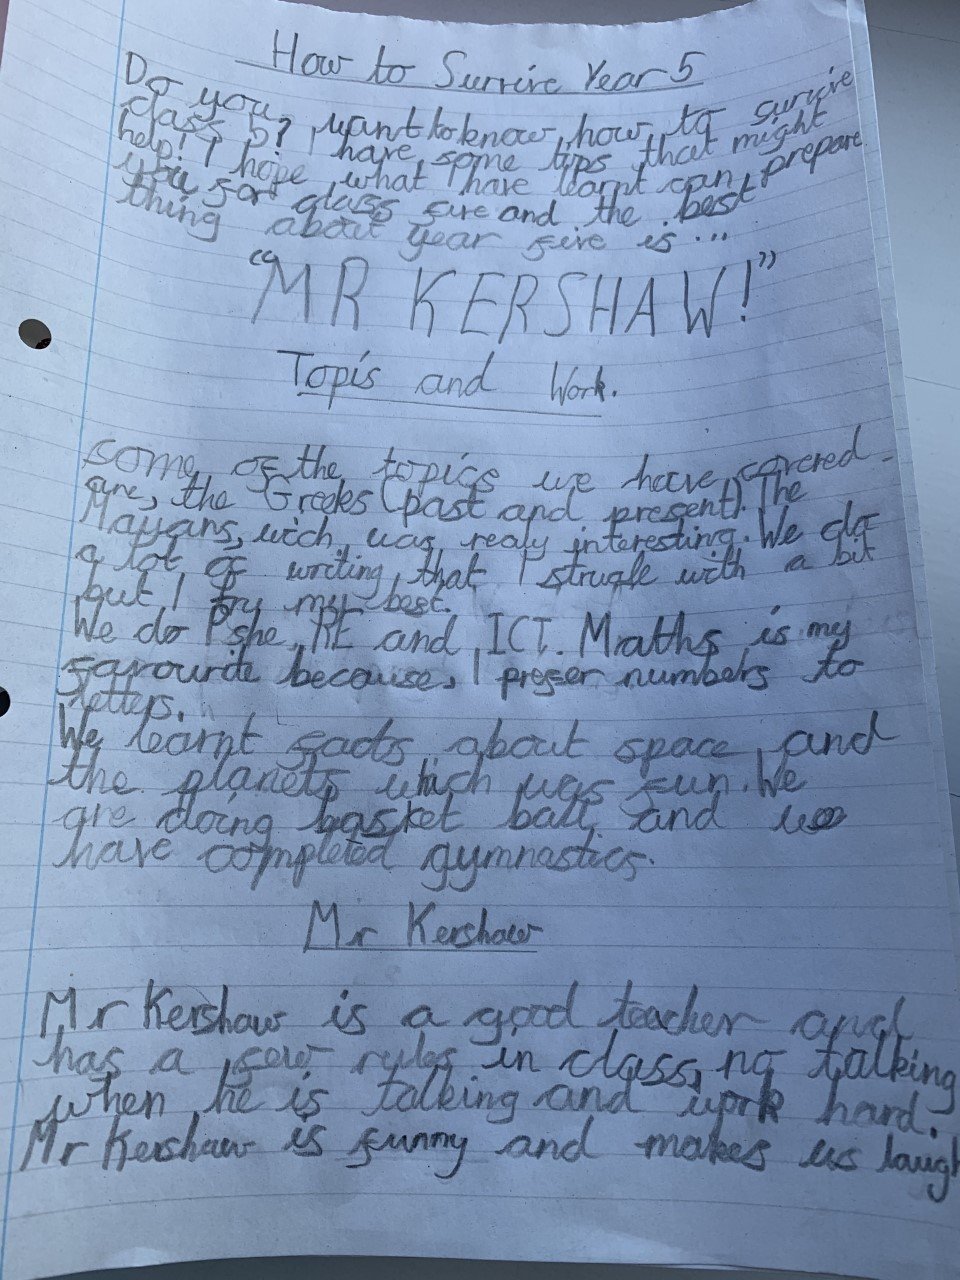 How to Survive Year 5
Do you want to know how to survive
class 5? I have some tips that might
help! I hope what I have learnt can prepare
you for class five and the best
thing about year five is...
"MR KERSHAW!"
Topis and Work.
some of the topics we have covered
are, the Greeks (past and present). The
Mayans, wich was realy interesting. We do
a lot of writing, that I strugle with a bit
but I try my best.
We do Pshe, RE and ICT. Maths is my
favourite because, I prefer numbers to
letters.
We learnt facts about space and
the planets which was fun. We
are doing basket ball and we
have completed gymnastics.
Mr Kershaw
Mr Kershaw is a good teacher and
has a few rules in class, no talking
when he is talking and work hard.
Mr Kershaw is funny and makes us laugh